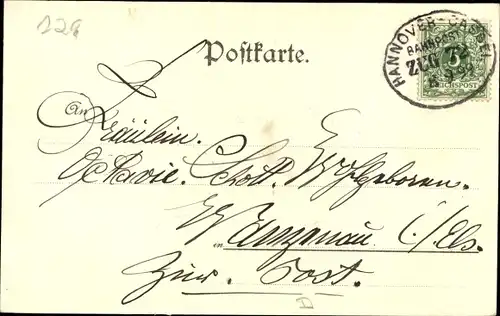 12a
Postkarte.
HANNOVER-CASSEL
BAHNPOST
ZUG 72
8.9.99
5
REICHSPOST
An
Fräulein.
Octavie. Scholl. Wohlgeboren.
in Wanzenau i/Els.
Zur. Post.